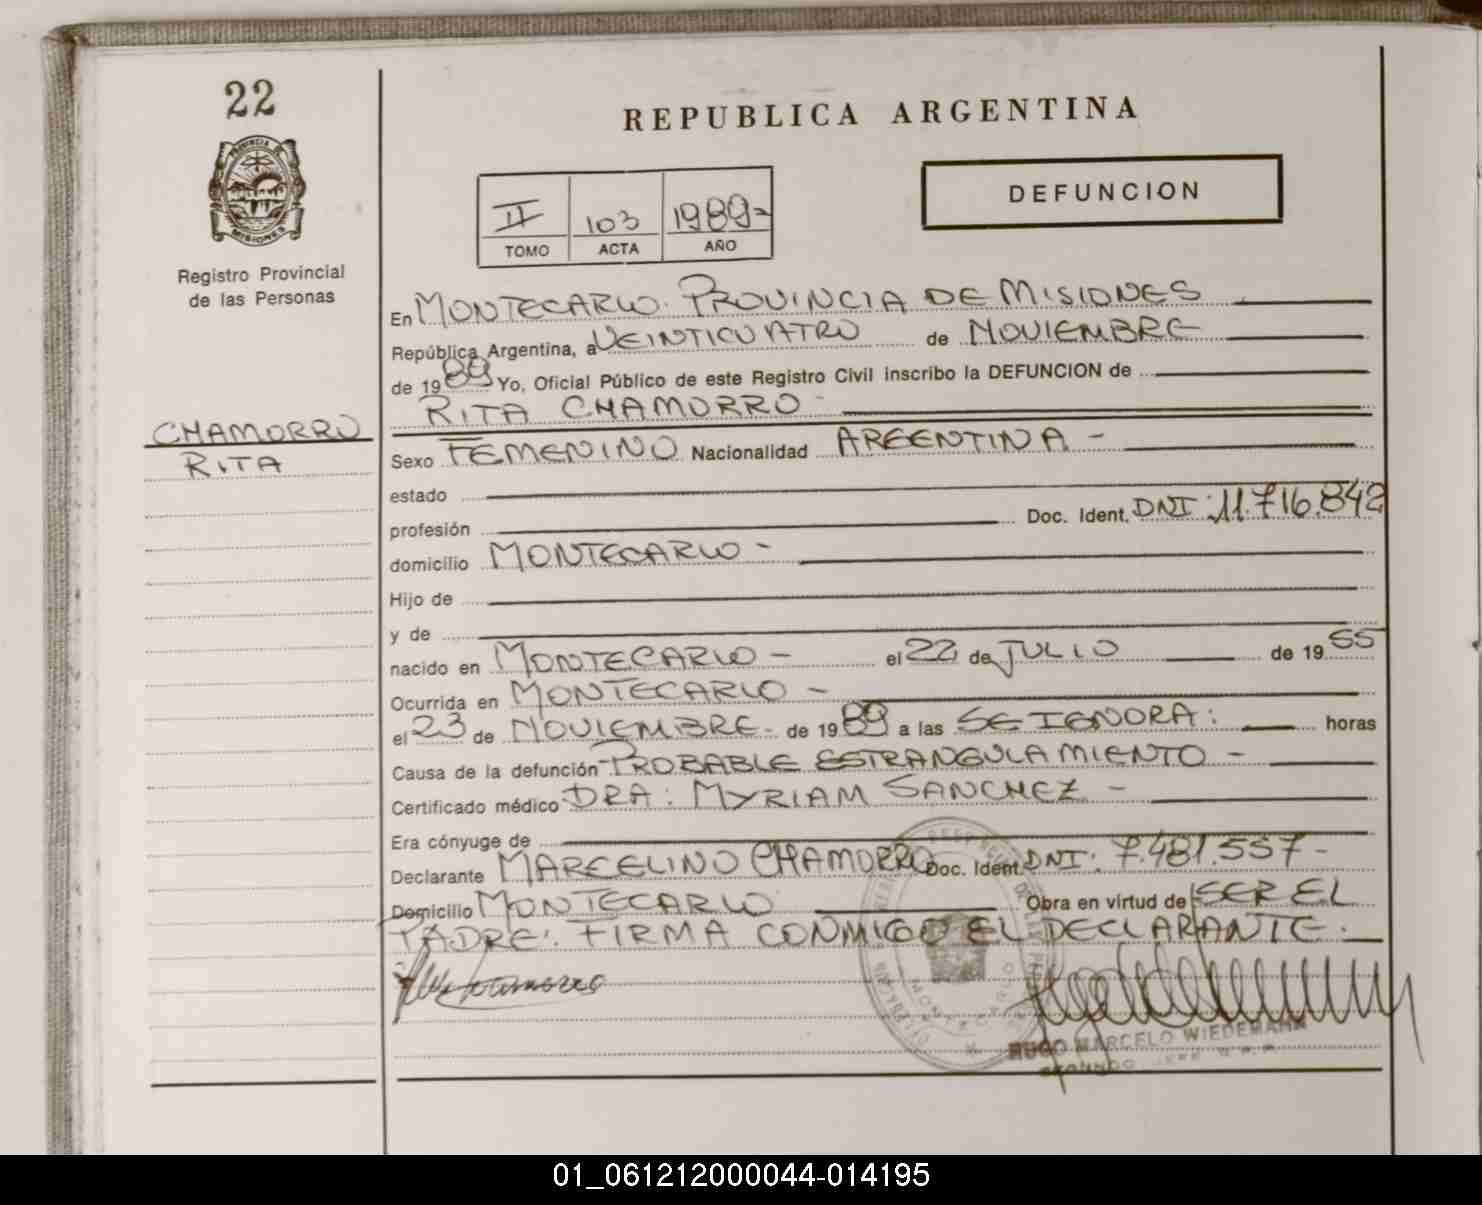 22
PROVINCIA DE
MISIONES
Registro Provincial
de las Personas
CHAMORRO
RITA
REPUBLICA ARGENTINA
II 103 1989-
TOMO ACTA AÑO
DEFUNCION
En MONTECARLO. PROVINCIA DE MISIONES
República Argentina, a VEINTICUATRO de NOVIEMBRE
de 1989 Yo, Oficial Público de este Registro Civil inscribo la DEFUNCION de
RITA CHAMORRO -
Sexo FEMENINO Nacionalidad ARGENTINA -
estado
profesión Doc. Ident. DNI: 11.716.842
domicilio MONTECARLO -
Hijo de
y de
nacido en MONTECARLO - el 22 de JULIO de 1955
Ocurrida en MONTECARLO -
el 23 de NOVIEMBRE - de 1989 a las SE IGNORA: horas
Causa de la defunción PROBABLE ESTRANGULAMIENTO -
Certificado médico DRA: MYRIAM SANCHEZ -
Era cónyuge de
Declarante MARCELINO CHAMORRO Doc. Ident. DNI: 7.481.557-
Domicilio MONTECARLO Obra en virtud de SER EL
PADRE. FIRMA CONMIGO EL DECLARANTE.
MONTECARLO
HUGO MARCELO WIEDEMANN
SEGUNDO JEFE
01_061212000044-014195